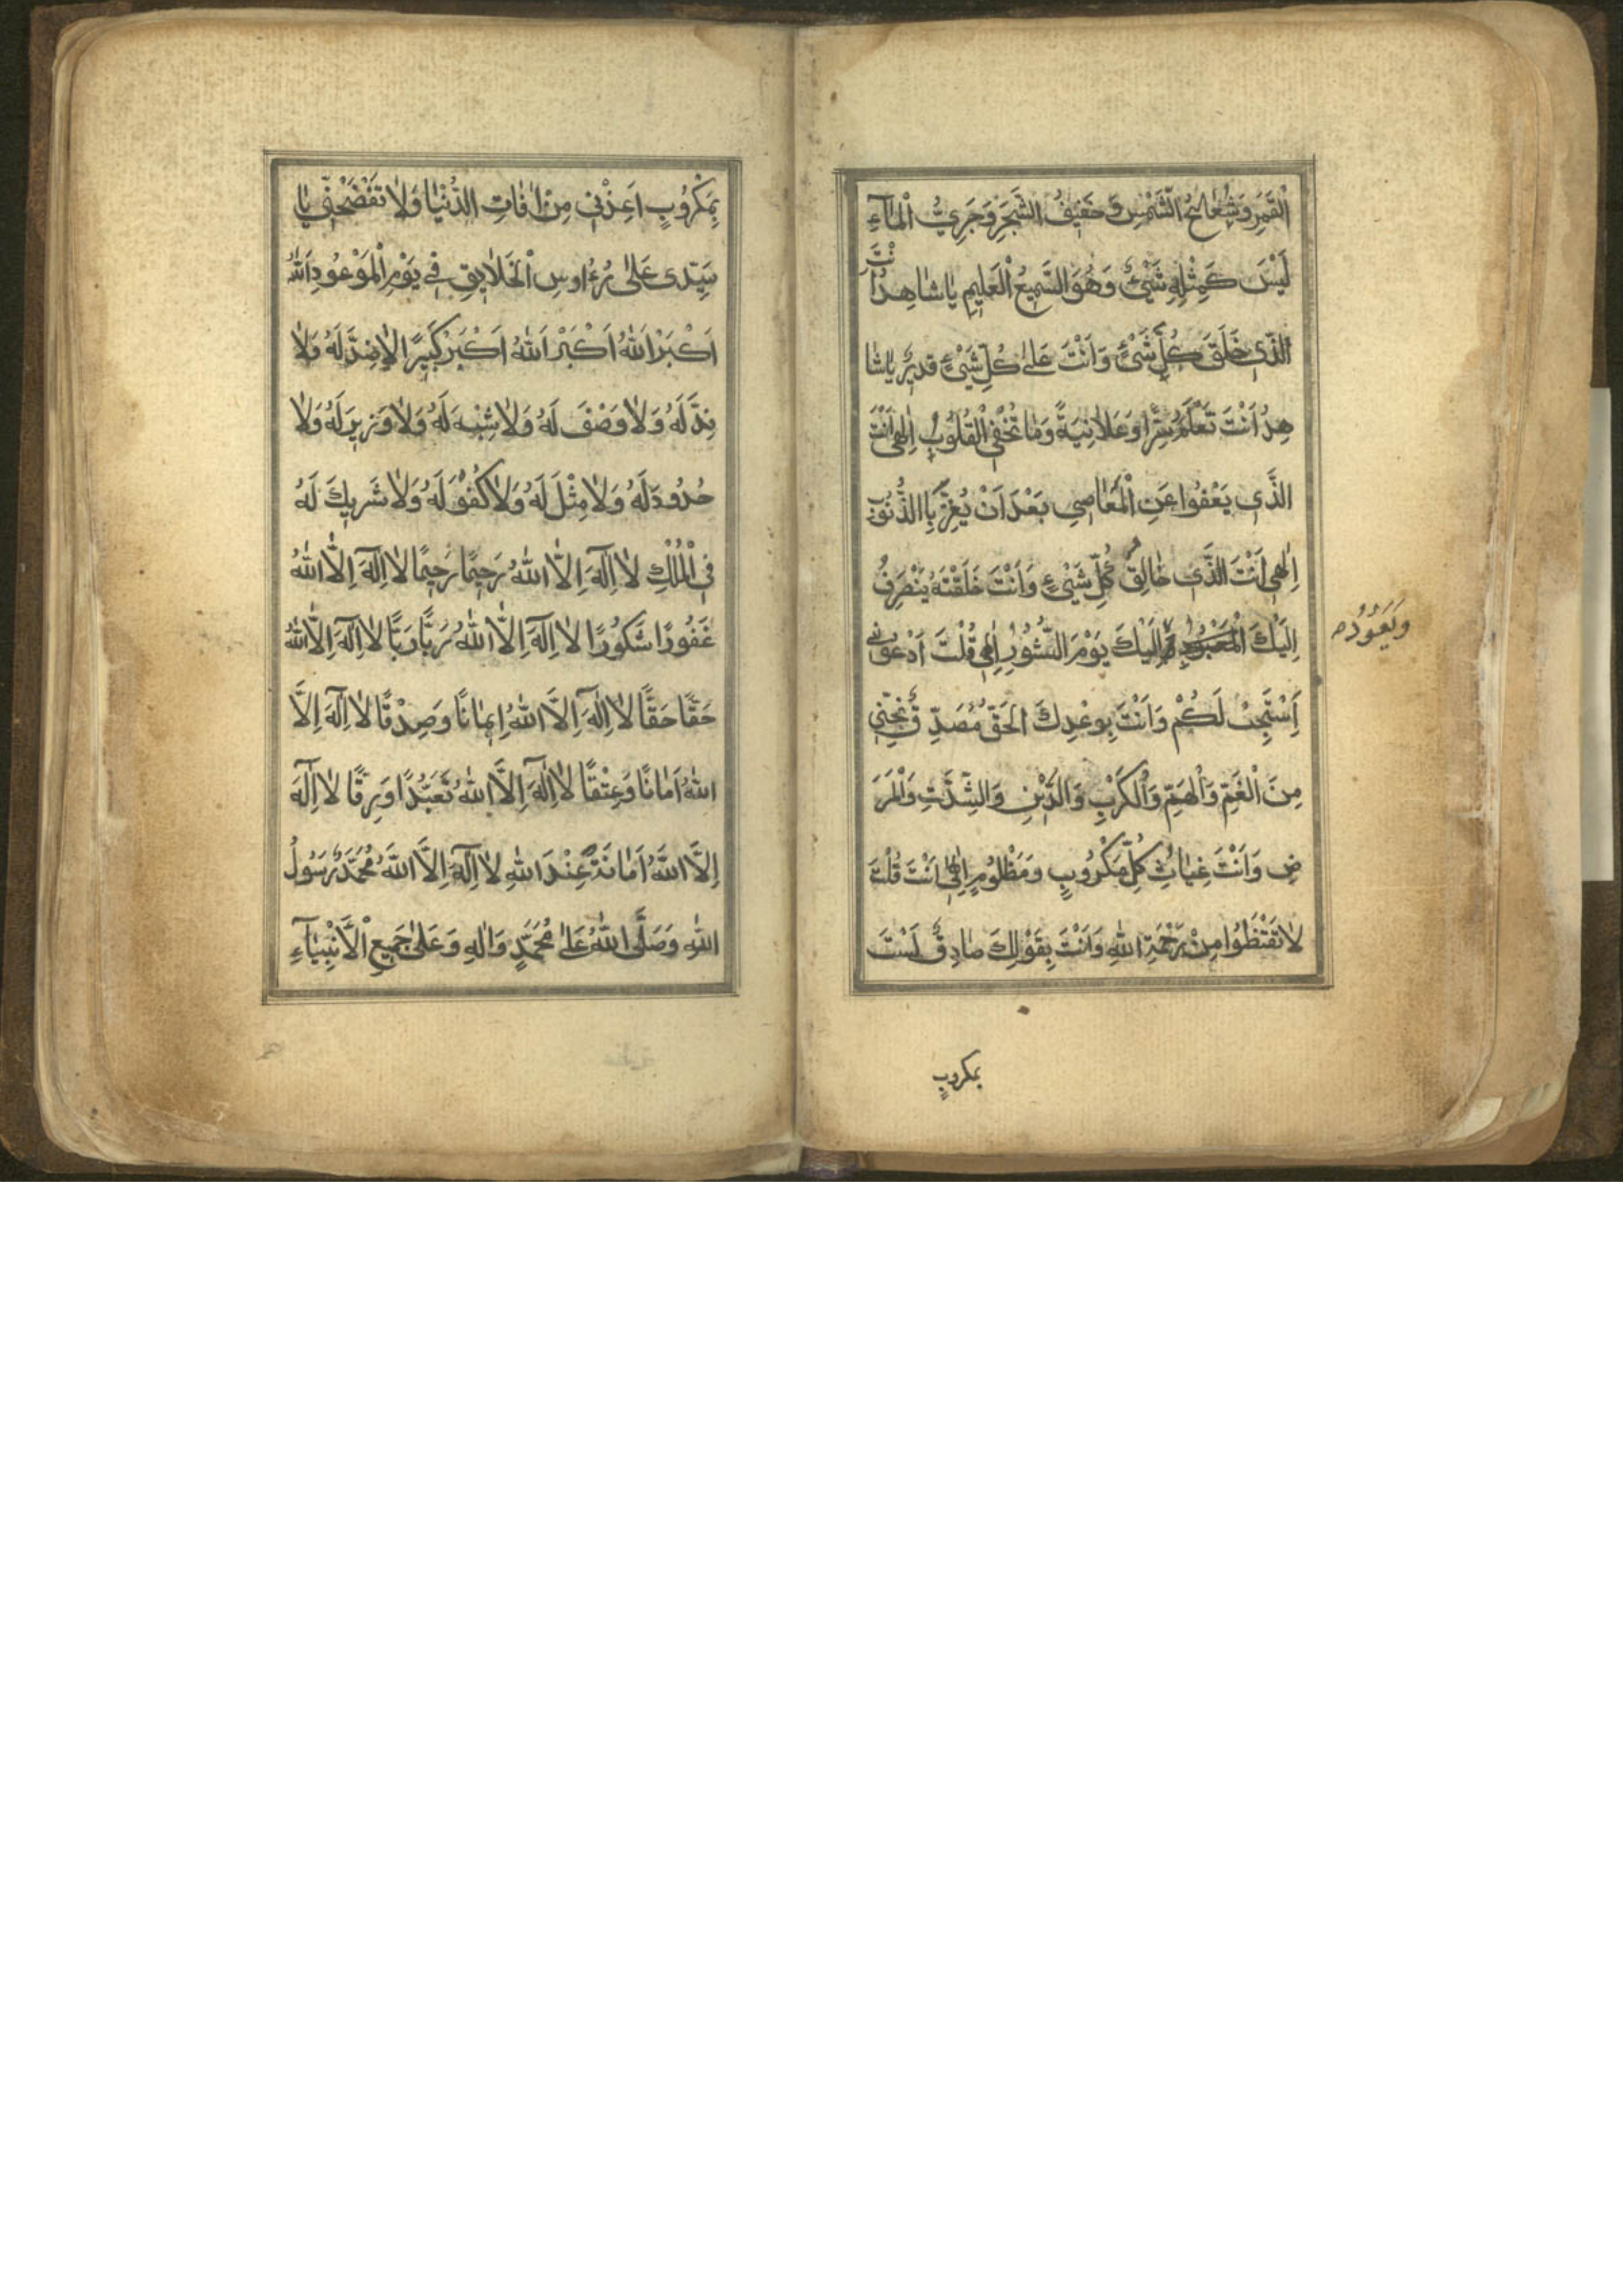 الْقَمَرِ وَشُعَاعُ الشَّمْسِ وَحَفِيفُ الشَّجَرِ وَجَرِيُّ الْمَآءِ
لَيْسَ كَمِثْلِهِ شَيْئٌ وَهُوَ السَّمِيعُ الْعَلِيمِ يَا شَاهِدُ اَنْتَ
الَّذِي خَلَقَ كُلِّ شَيْئٍ وَاَنْتَ عَلَى كُلِّ شَيْئٍ قَدِيرٌ يَا شَا
هِدُ اَنْتَ تَعْلَمُ سِرًّا وَعَلَانِيَةً وَمَا تُخْفِي الْقُلُوبُ اِلٰهِي اَنْتَ
الَّذِي يَعْفُوا عَنِ الْمَعَاصِي بَعْدَ اَنْ يُغِرَّ بِاالذُّنُوبِ
اِلٰهِي اَنْتَ الَّذِي خَالِقُ كُلِّ شَيْئٍ وَاَنْتَ خَلَقْتَهُ يَنْصَرِفُ
اِلَيْكَ الْمَعْبُودِ اِلَيْكَ يَوْمَ النُّشُورِ اِلٰهِي قُلْتَ اَدْعُونِي
وَيَعُودُ
اَسْتَجِبْ لَكُمْ وَاَنْتَ بِوَعْدِكَ الْحَقُّ مُصَدِّقٌ نَجِّنِي
مِنَ الْغَمِّ وَالْهَمِّ وَالْكَرْبِ وَالدَّيْنِ وَالشِّدَّتِ وَالْمَرَ
ضِ وَاَنْتَ غِيَاثُ كُلِّ مَكْرُوبٍ وَمَظْلُومٍ اِلٰهِي اَنْتَ قُلْتَ
لَا تَقْنَطُوا مِنْ رَحْمَةِ اللّٰهِ وَاَنْتَ بِقَوْلِكَ صَادِقٌ لَسْتَ
بمكروبٍ
بِمَكْرُوبٍ اَعِذْنِي مِنْ اٰفَاتِ الدُّنْيَا وَلَا تَفْضَحْنِي يَا
سَيِّدِي عَلَى رُءُاوسِ الْخَلَايِقِ فِي يَوْمِ الْمَوْعُودِ اَللّٰهُ
اَكْبَرْ اَللّٰهُ اَكْبَرْ اَللّٰهُ اَكْبَرْ كَبِيرًا لَاضِدَّ لَهُ وَلَا
نِدَّ لَهُ وَلَا وَصْفَ لَهُ وَلَا شِبْهَ لَهُ وَلَا وَزِيرَ لَهُ وَلَا
حُدُودَ لَهُ وَلَا مِثْلَ لَهُ وَلَا كُفُوَ لَهُ وَلَا شَرِيكَ لَهُ
فِي الْمُلْكِ لَا اِلٰهَ اِلَّا اللّٰهُ رَحِيمًا رَحِيمًا لَا اِلٰهَ اِلَّا اللّٰهُ
غَفُورًا شَكُورًا لَا اِلٰهَ اِلَّا اللّٰهُ رَبًّا رَبًّا لَا اِلٰهَ اِلَّا اللّٰهُ
حَقًّا حَقًّا لَا اِلٰهَ اِلَّا اللّٰهُ اِيمَانًا وَصِدْقًا لَا اِلٰهَ اِلَّا
اللّٰهُ اَمَانًا وَعِتْقًا لَا اِلٰهَ اِلَّا اللّٰهُ تَعَبُّدًا وَرِقًّا لَا اِلٰهَ
اِلَّا اللّٰهُ اَمَانَةً عِنْدَ اللّٰهِ لَا اِلٰهَ اِلَّا اللّٰهُ مُحَمَّدٌ رَسُولُ
اللّٰهِ وَصَلَّى اللّٰهُ عَلَى مُحَمَّدٍ وَاٰلِهِ وَعَلَى جَمِيعِ الْاَنْبِيَآءِ